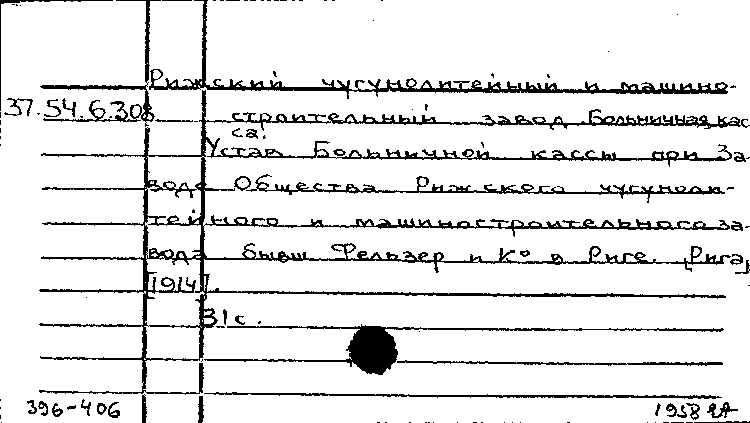 Рижский чугунолитейный и машино-
37.54.6.308 строительный завод Больничная кас
са.
Устав Больничной кассы при За
воде Общества Рижского чугуноли-
тейного и машиностроительного за-
вода бывш Фельзер и К° в Риге. [Рига,
[1914].
31 с.
396-406 1958